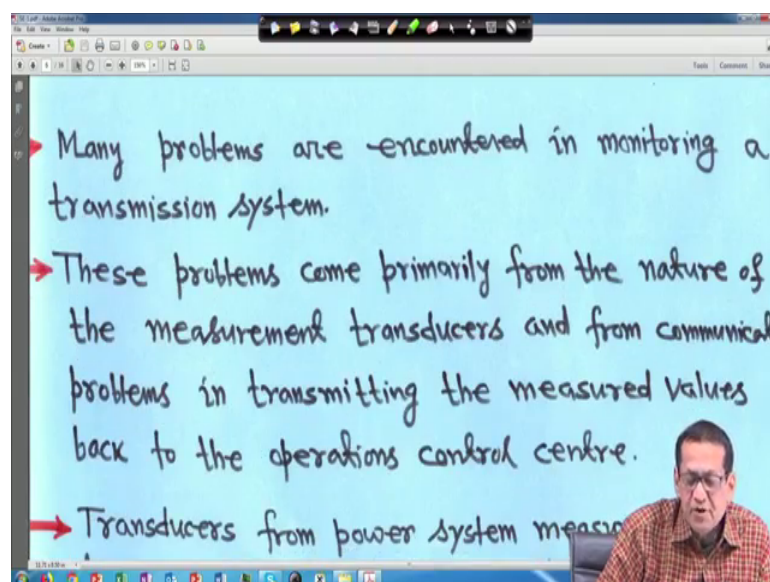 SE-1.pdf - Adobe Acrobat Pro
File Edit View Window Help
Create
Tools Comment
Many problems are encountered in monitoring a
transmission system.
These problems come primarily from the nature of
the measurement transducers and from communicat
problems in transmitting the measured values
back to the operations control centre.
Transducers from power system measu